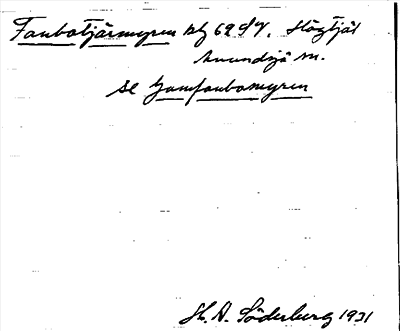 Fanbotjärnmyren blg 69 S/V. Högtjäl
Anundsjö sn.
se Gamfanbomyren
H. A. Söderberg 1931